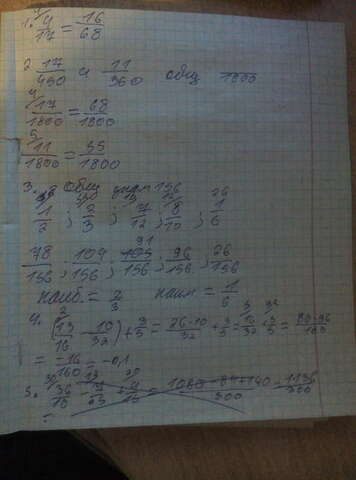 1. 4/17 = 16/68
2. 17/450 и 11/360 общ 1800
17/1800 = 68/1800
11/1800 = 55/1800
3. общ знам 156
1/2 ; 2/3 ; 7/12 ; 8/13 ; 1/6
78/156 ; 104/156 ; 91/156 ; 96/156 ; 26/156
наиб. = 2/3 наим = 1/6
4. (13/16 - 10/32) + 3/5 = 26-10/32 + 3/5 = 16/32 + 3/5 = 80-96/160
= -16/160 = -0,1
5.